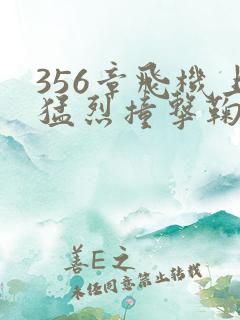 356章飛機上
猛烈撞擊鞠
善E之
未经同意禁止转载